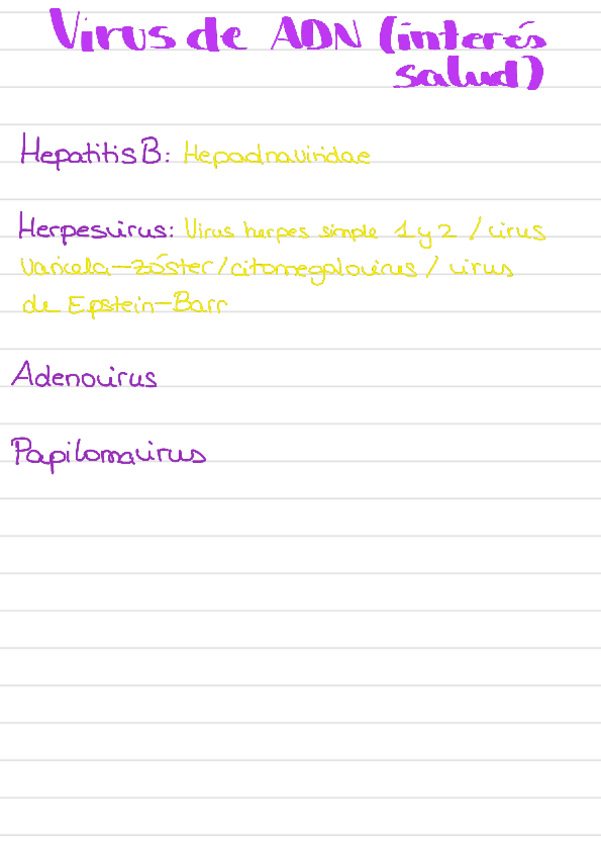 Virus de ADN (interés
salud)
Hepatitis B: Hepadnaviridae
Herpesvirus: Virus herpes simple 1 y 2 / virus
varicela-zóster/citomegalovirus / virus
de Epstein-Barr
Adenovirus
Papilomavirus